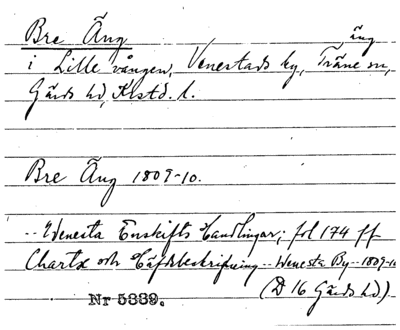 Bre Äng äng
i Lille vången, Venestads by, Träne sn,
Gärds hd, Krstd. l.
Bre Äng 1809-10.
-- Wenesta Enskifts Handlingar; fol 174 ff
Charta och Häfdebeskrifning -- Wenesta By -- 1809-10
(D 16 Gärds hd))
Nr 5339.